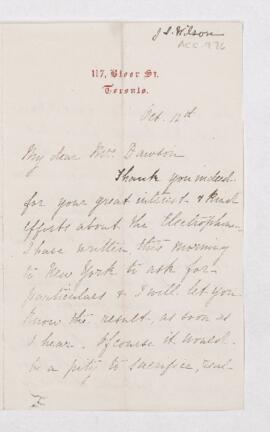 J. S. Wilson
ACC 976
117, Bloor St.
Toronto.
Oct. 12d
My dear Mrs. Dawson
Thank you indeed
for your great interest & kind
efforts about the Electrophone
I have written this morning
to New York to ask for
particulars & I will let you
know the result, as soon as
I hear. Of course it would
be a pity to sacrifice, real